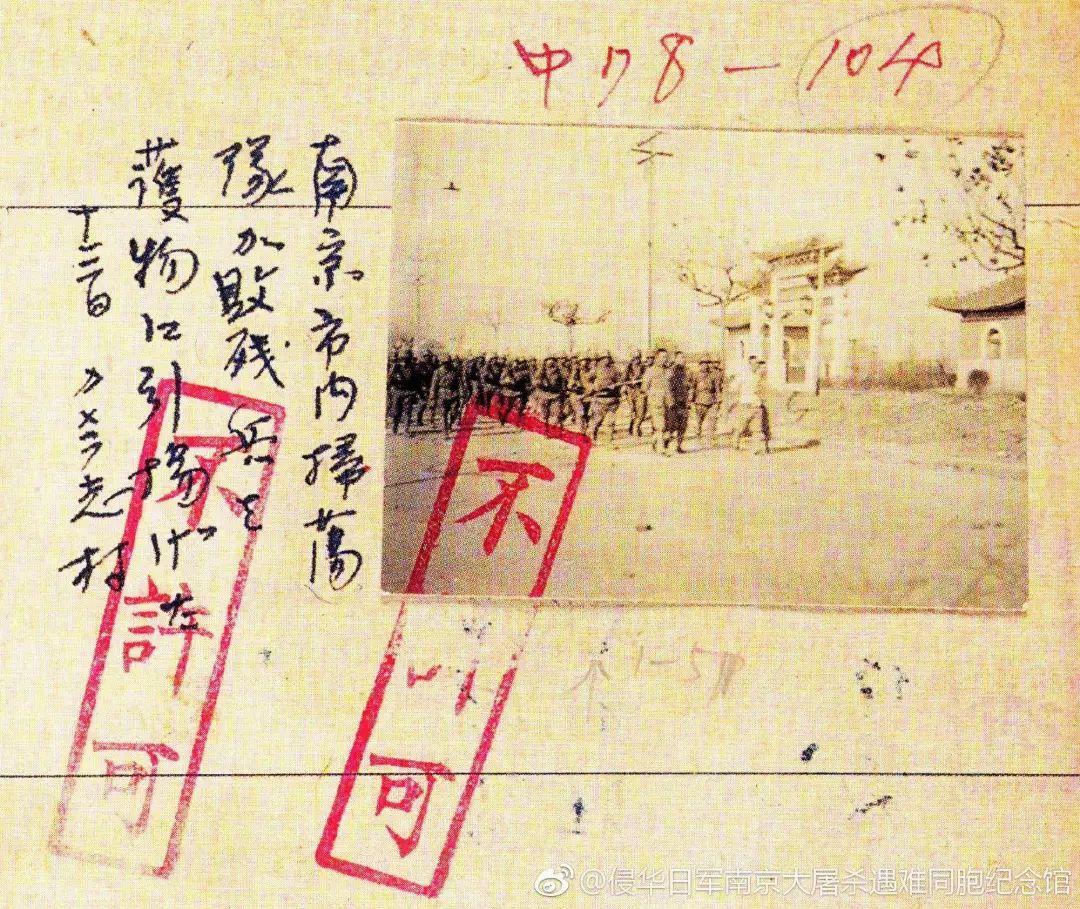 中178-104
南京市内掃蕩
隊が敗残兵を
護物に引揚げた
十三日 志村
不許可
不 可
1-5
@侵华日军南京大屠杀遇难同胞纪念馆